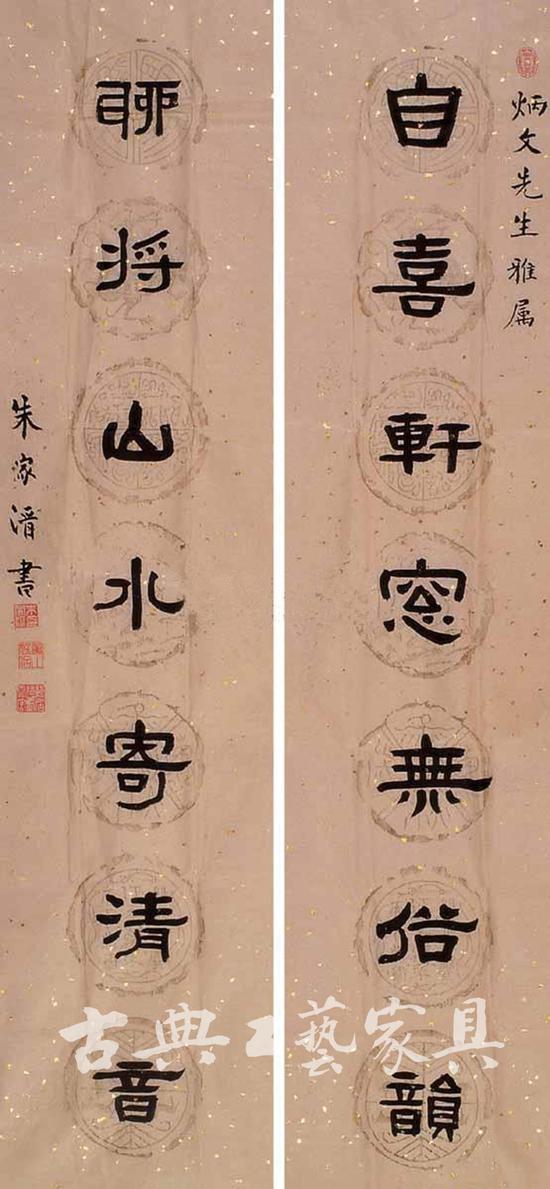 炳文先生雅属
自喜軒窓無俗韻
聊將山水寄清音
朱家溍書
古典工藝家具